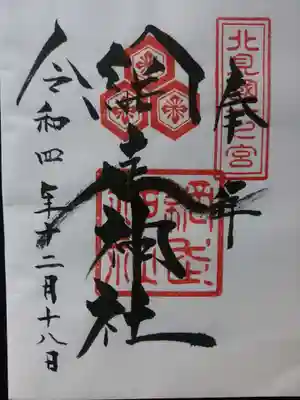 北見國一之宮
奉拝
網走神社
網走
神社
令和四年十二月十八日